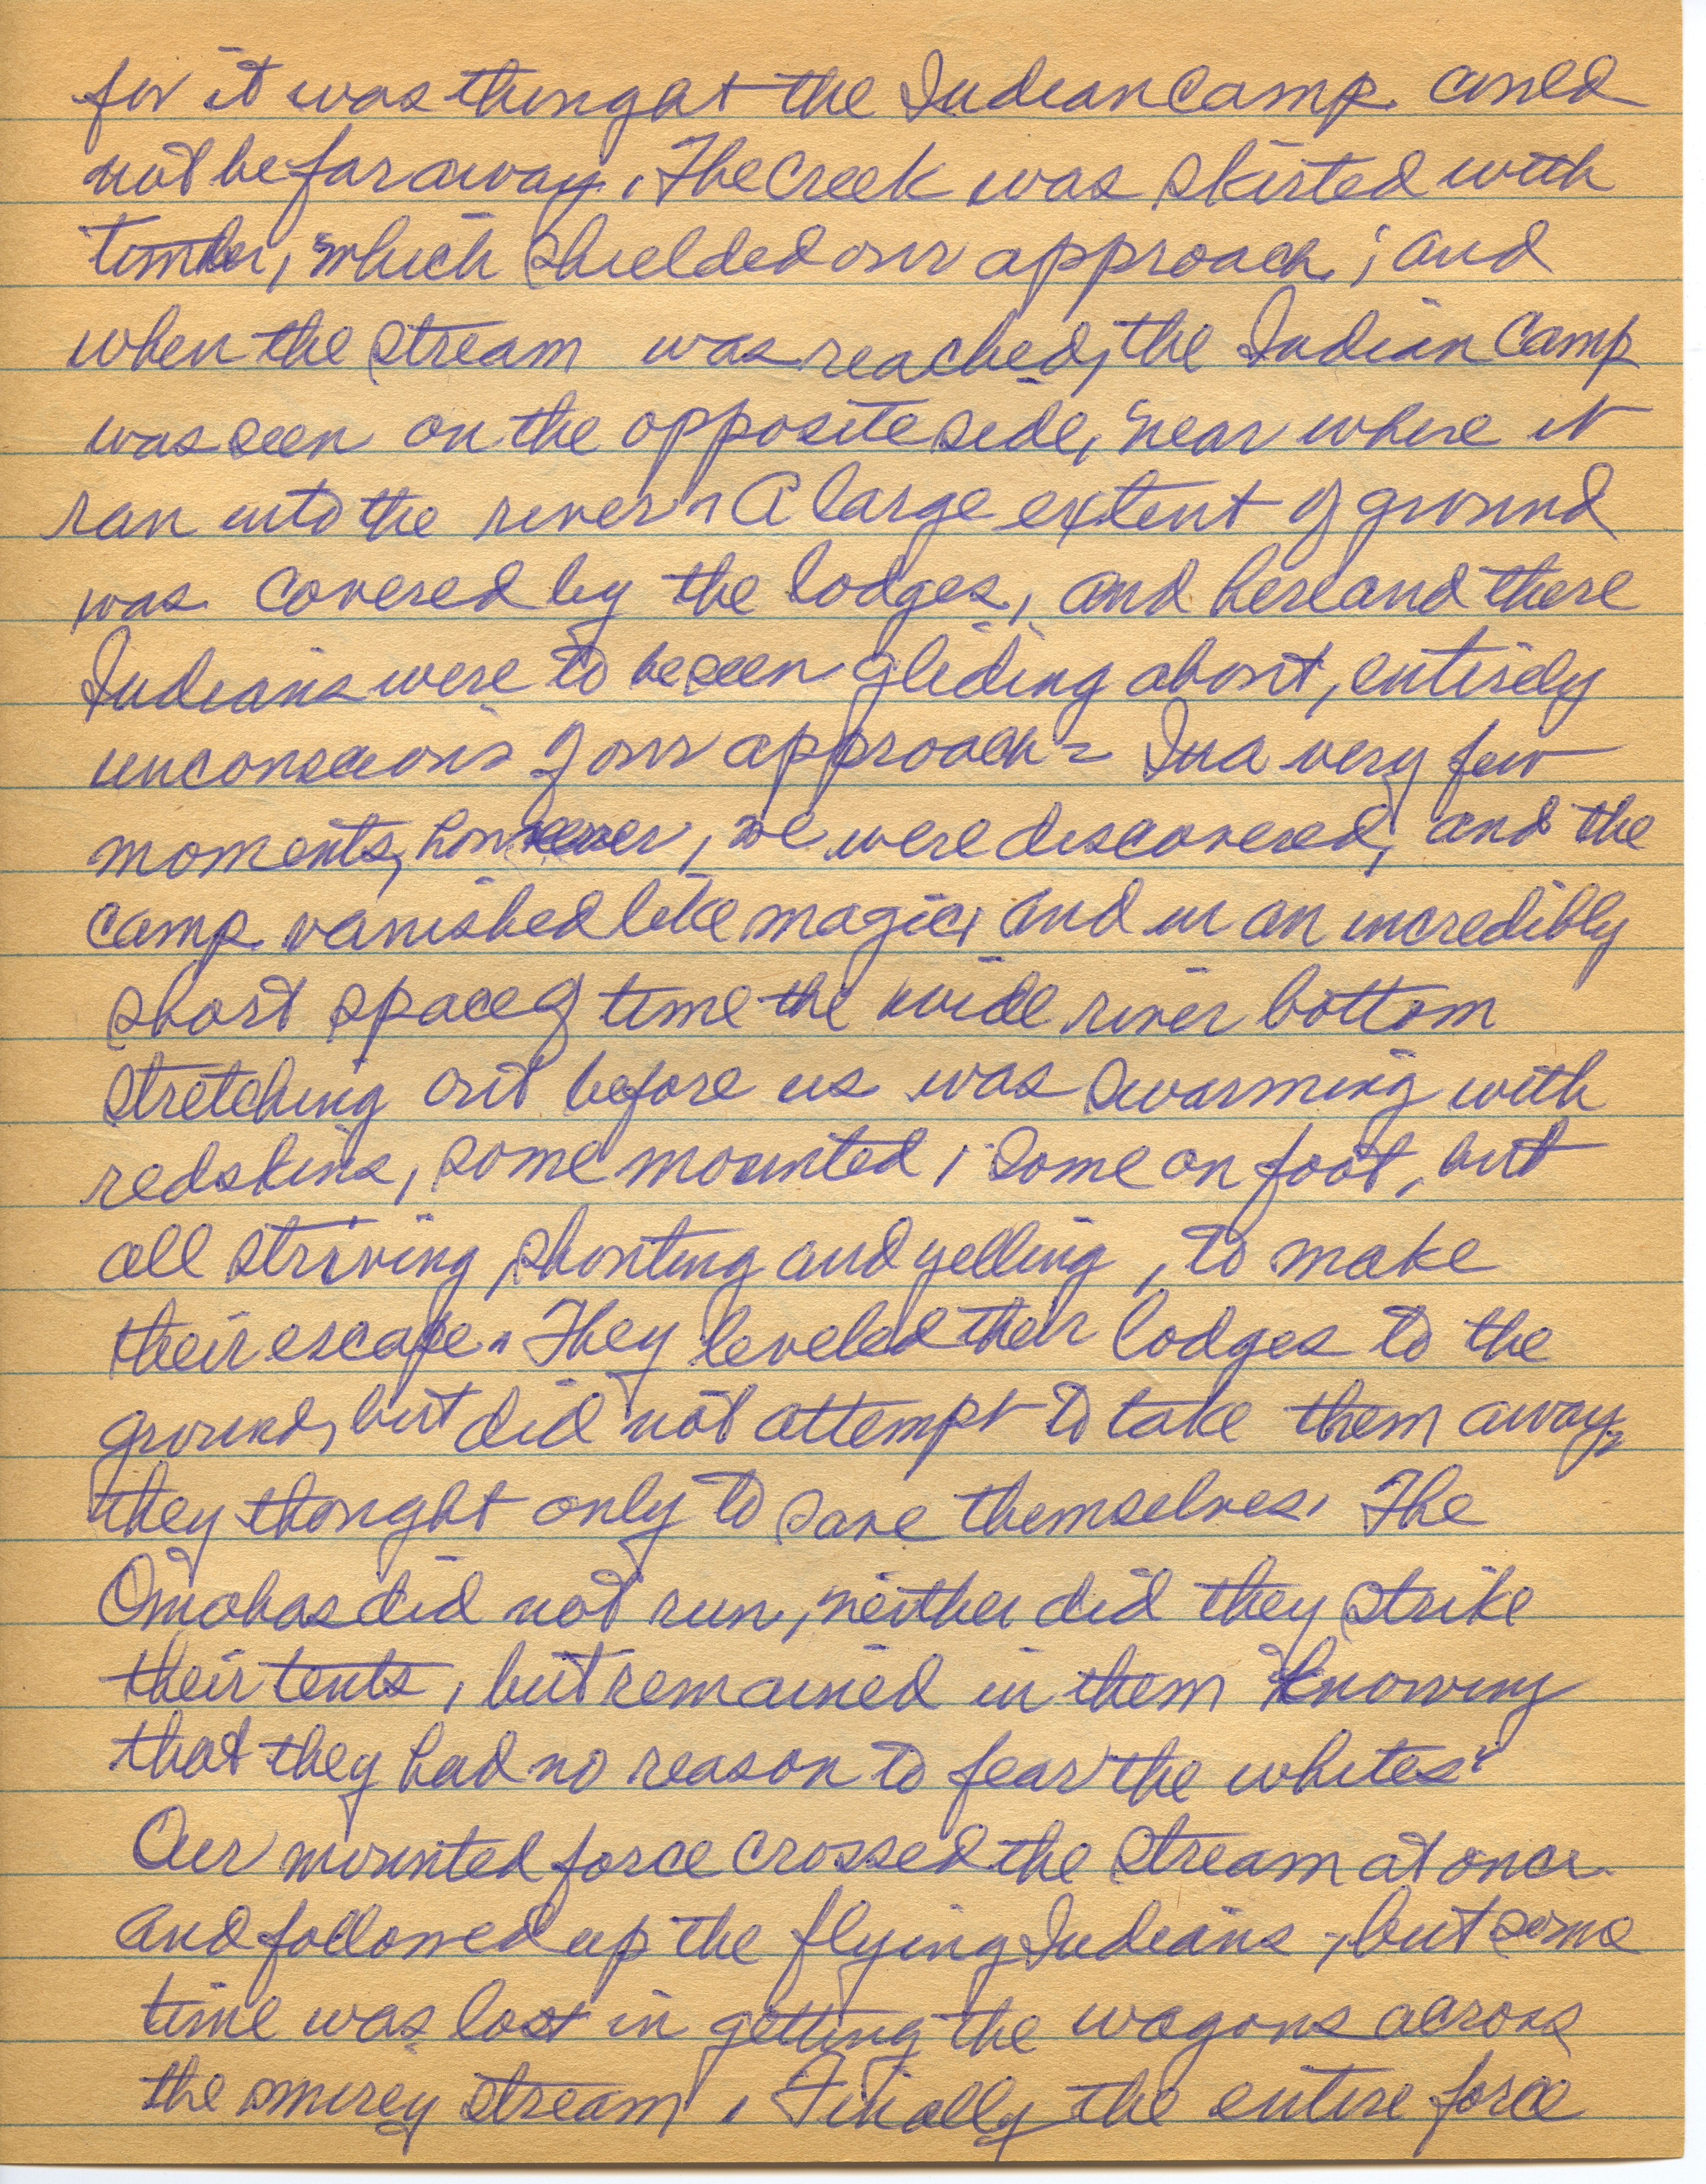 for it was thought the Indian Camp could
not be far away. The creek was skirted with
timber, which shielded our approach; and
when the stream was reached, the Indian Camp
was seen on the opposite side, near where it
ran into the river. A large extent of ground
was covered by the lodges, and here and there
Indians were to be seen gliding about, entirely
unconscious of our approach - In a very few
moments, however, we were discovered, and the
camp vanished like magic, and in an incredibly
short space of time the wide river bottom
stretching out before us was swarming with
redskins, some mounted, some on foot, but
all striving, shouting and yelling, to make
their escape. They leveled their lodges to the
ground, but did not attempt to take them away,
they thought only to save themselves. The
Omahas did not run, neither did they strike
their tents, but remained in them knowing
that they had no reason to fear the whites.
Our mounted force crossed the stream at once
and followed up the flying Indians, but some
time was lost in getting the wagons across
the mirey stream. Finally the entire force